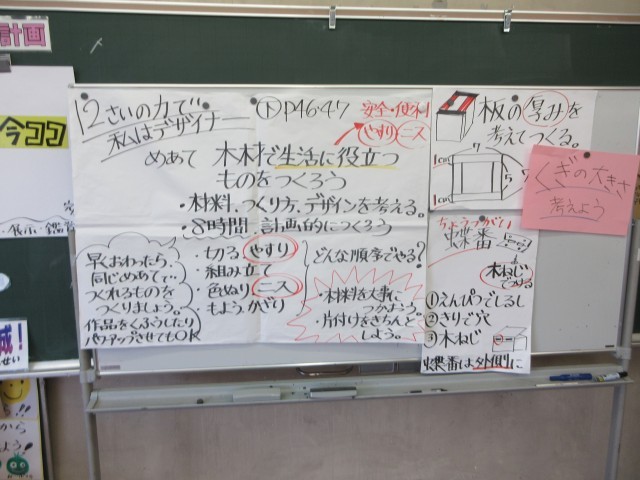 計画
今ココ
12さいの力で
私はデザイナー
下P46・47
安全・便利
やすり ニス
めあて 木材で生活に役立つ
ものをつくろう
・材料、つくり方、デザインを考える。
・8時間、計画的につくろう
早くおわったら、
同じめあてで、
つくれるものを
つくりましょう。
作品をくふうしたり
パワーアップさせてもOK
・切る やすり
・組み立て
・色ぬり ニス
・もよう かざり
どんな順序でやる?
・材料を大事に
つかおう
・片付けをきちんと
しよう。
板の厚みを
考えてつくる。
1cm
7
5
5
1cm
くぎの大きさ
考えよう
ちょうつがい
蝶番
木ねじ
でつける
①えんぴつでしるし
②きりで穴
③木ねじ
蝶番は外側に